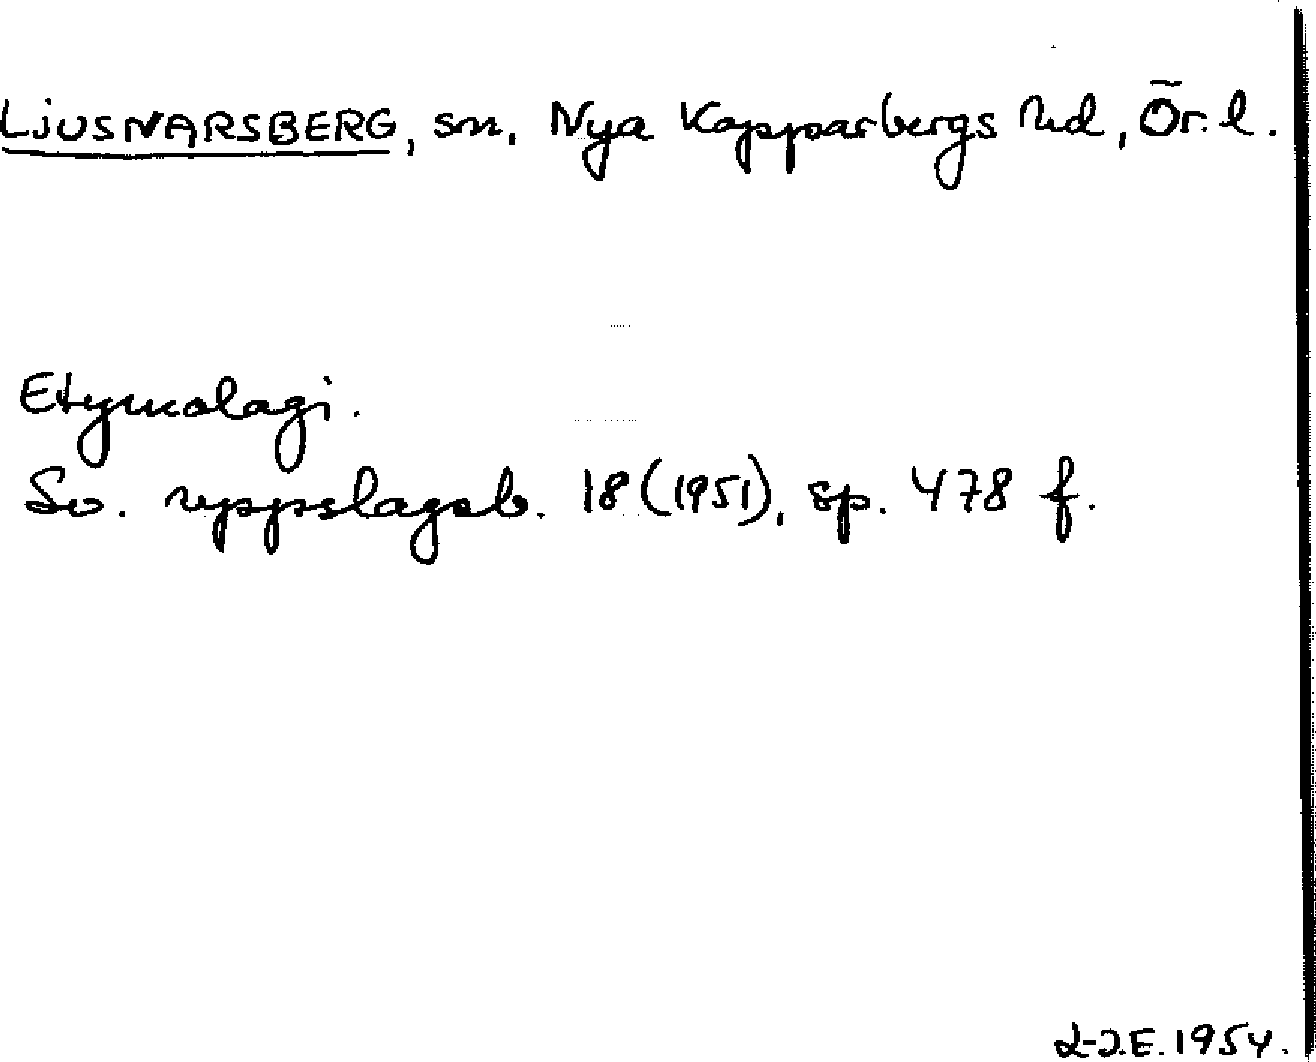 LJUSNARSBERG, sn, Nya Kopparbergs hd, Ör. l.
Etymologi.
Sv. uppslagsb. 18 (1951), sp. 478 f.
L-J.E. 1954.